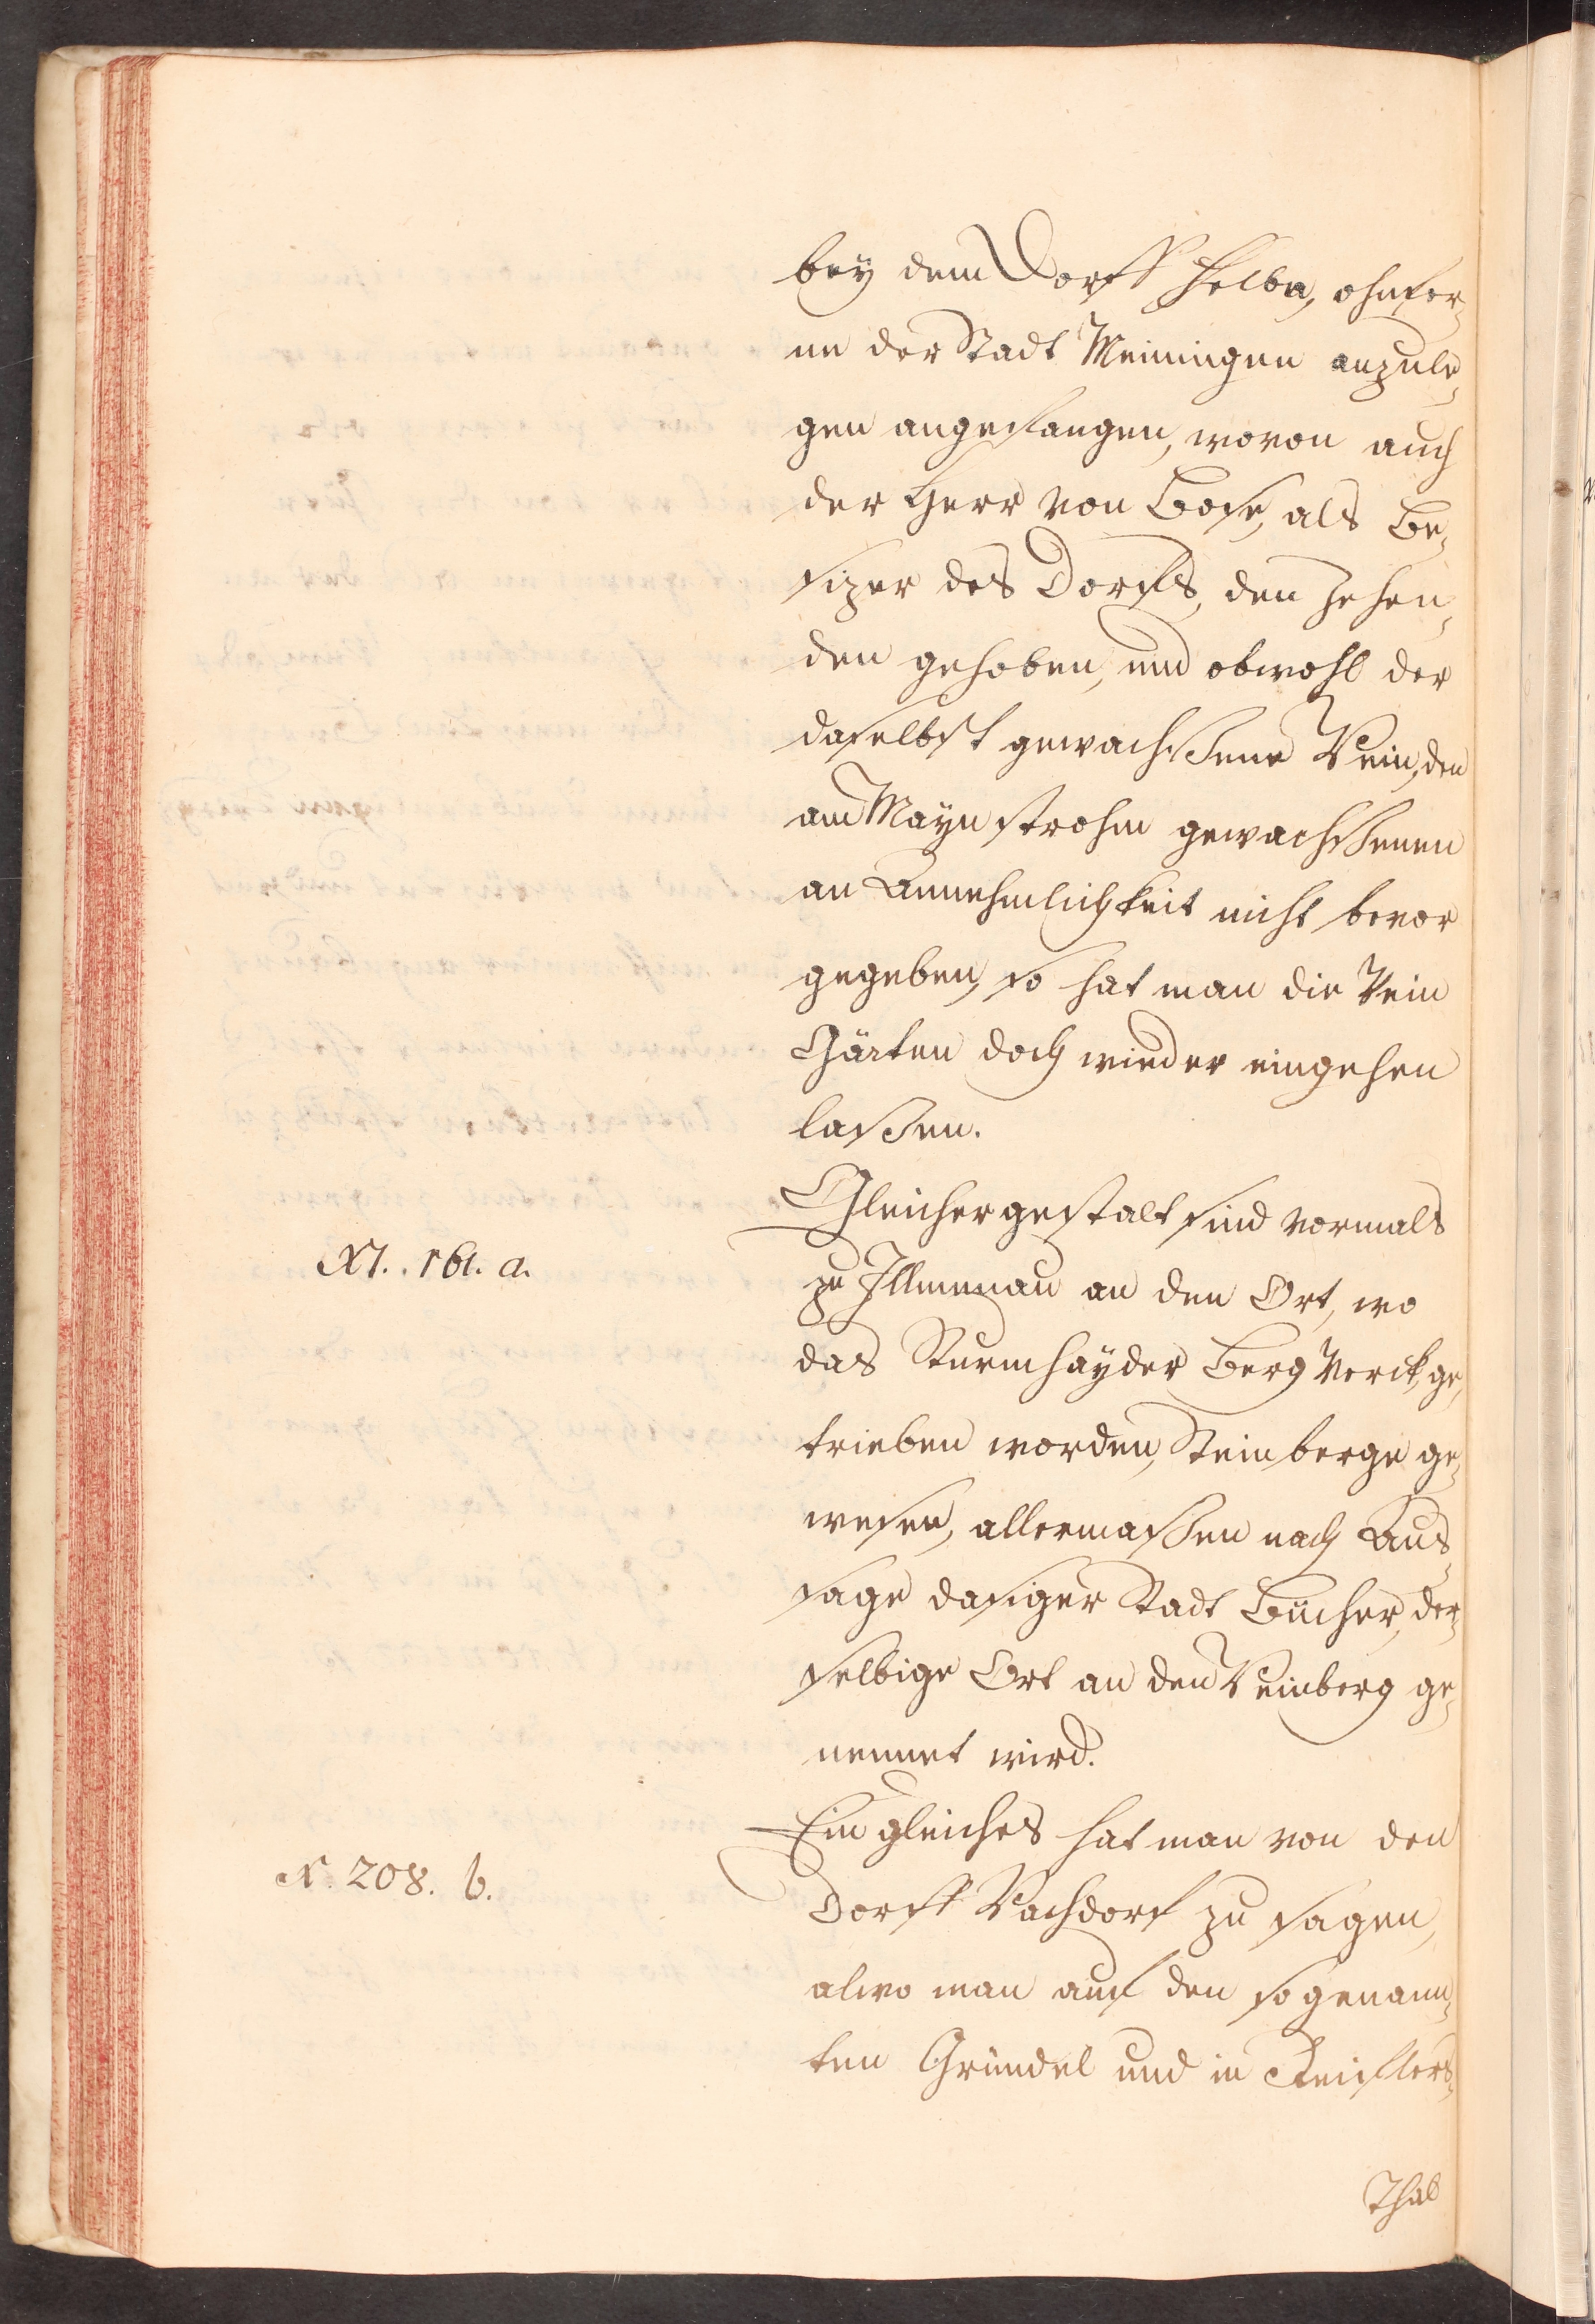 bey dem Dorff Helba, ohnfer-
ne der Stadt Meiningen anzule-
gen angefangen, wovon auch
der Herr von Bose, als Be-
sizer des Dorfs, den Zehen-
den gehoben, und obwohl der
daselbst gewachssene Wein, den
am Maynstrohm gewachssenen
an Annehmlichkeit nicht bevor
gegeben, so hat man die Wein
Gärten doch wieder eingehen
lassen.
Gleichergestalt sind vormals
N. 161. a.
zu Illmenau an den Ort, wo
das Sturmhayder Berg Werck, ge-
trieben worden, Weinberge ge-
wesen, allermassen nach Aus-
sage dasiger Stadt Bücher, der-
selbige Ort an den Weinberg ge-
nennet wird.
Ein gleiches hat man von den
N. 208. b.
Dorff Vachdorf zu sagen,
alwo man auf den so genann-
ten Gründel und in
Thal